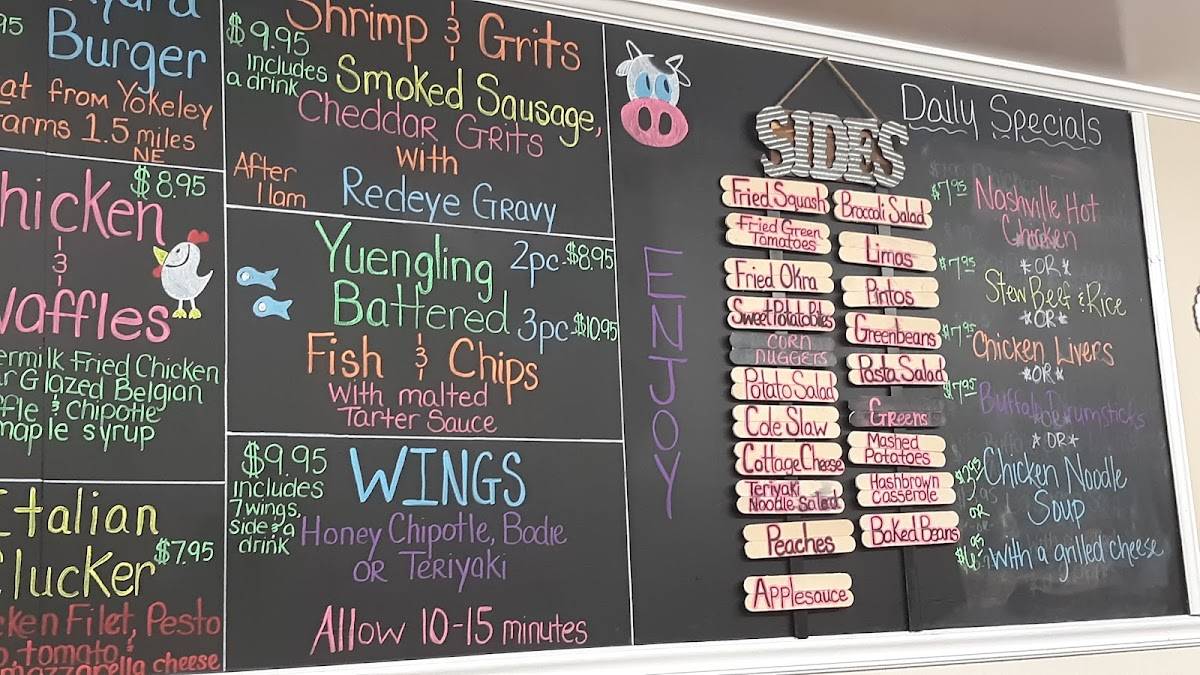 Burger
from Yokeley
1.5 miles
NE
$8.95
&
95
Italian
$7.95
Filet, Pesto
tomato,
cheese
Fried Chicken
Glazed Belgian
& chipotle
maple syrup
Shrimp & Grits
$9.95
includes
a drink
Smoked Sausage,
Cheddar Grits
with
After
11am
Redeye Gravy
Yuengling
Battered
2pc-$8.95
3pc-$10.95
Fish & Chips
With malted
Tarter Sauce
$9.95
includes
7 wings,
side & a
drink
WINGS
Honey Chipotle, Bodie
or Teriyaki
Allow 10-15 minutes
ENJOY
SIDES
Fried Squash
Fried Green
Tomatoes
Fried Okra
Sweet Potato Bites
CORN
NUGGETS
Potato Salad
Cole Slaw
Cottage Cheese
Teriyaki
Noodle Salad
Peaches
Applesauce
Broccoli Salad
Limas
Pintos
Greenbeans
Pasta Salad
Greens
Mashed
Potatoes
Hashbrown
Casserole
Baked Beans
Daily Specials
$7.95 Nashville Hot
Chicken
*OR*
$7.95 Stew Beef & Rice
*OR*
$7.95 Chicken Livers
*OR*
$7.95 Buffalo Drumsticks
*OR*
Chicken Noodle
Soup
OR
with a grilled cheese